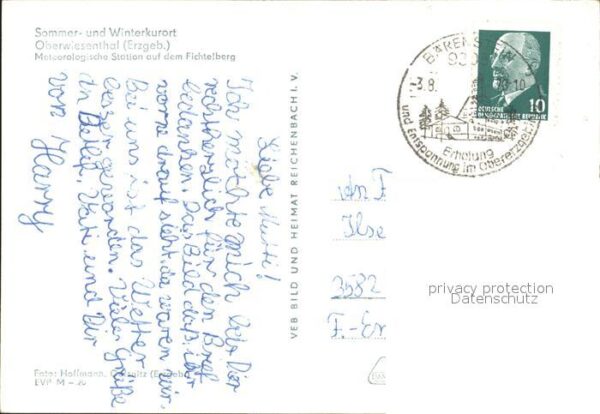 Sommer- und Winterkurort
Oberwiesenthal (Erzgeb.)
Meteorologische Station auf dem Fichtelberg
Liebe Mutti!
Ich möchte mich bei Dir
rechtherzlich für den Brief
bedanken. Das Bild daß ihr
vorne drauf sieht, da waren wir.
Bei uns ist das Wetter
besser geworden. Viele Grüße
an Detlef, Vati und Dir
von Harry
VEB BILD UND HEIMAT REICHENBACH I. V.
Foto: Hoffmann, (Erzgeb.)
EVP M –.20
BÄRENSTEIN
-3.8.
Erholung
und Entspannung im Obererzgeb.
DEUTSCHE
DEMOKRATISCHE REPUBLIK
10
An F
Ilse
3582
F.-Er
privacy protection
Datenschutz